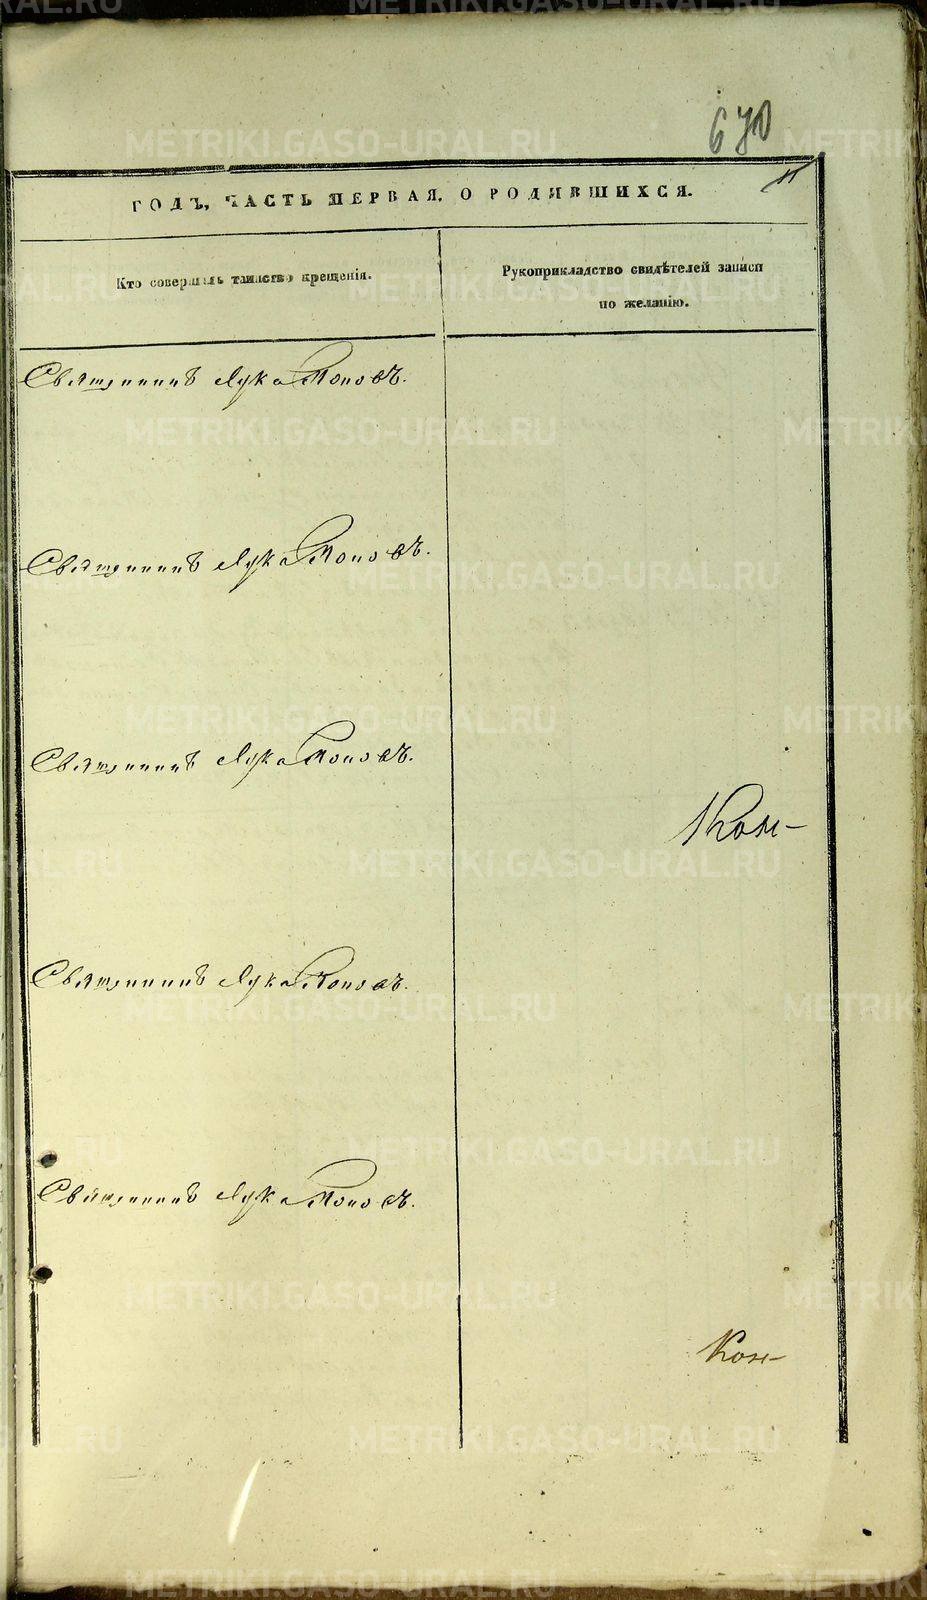 670
ГОДЪ, ЧАСТЬ ПЕРВАЯ, О РОДИВШИХСЯ.
Кто совершалъ таинство крещенія.
Рукоприкладство свидѣтелей записи
по желанію.
Священникъ Лука Поповъ.
Священникъ Лука Поповъ.
Священникъ Лука Поповъ.
Священникъ Лука Поповъ.
Священникъ Лука Поповъ.
METRIKI.GASO-URAL.RU